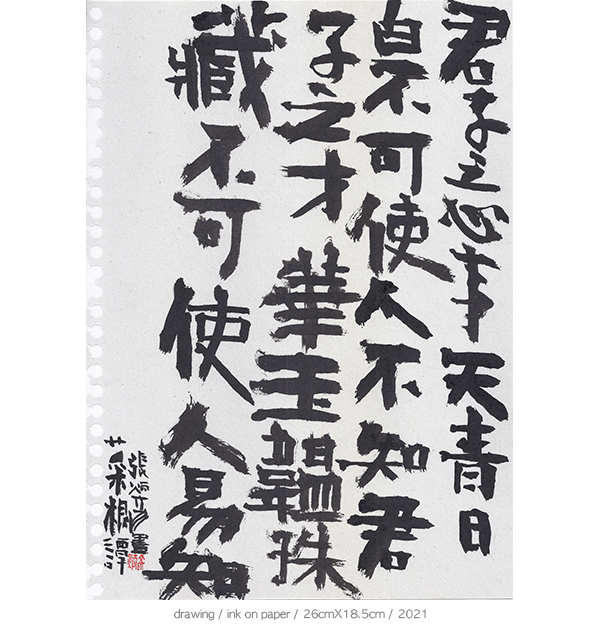 君子之心事天青日
白不可使人不知君
子之才華玉韞珠
藏不可使人易知
張 畫
菜根譚
drawing / ink on paper / 26cmX18.5cm / 2021